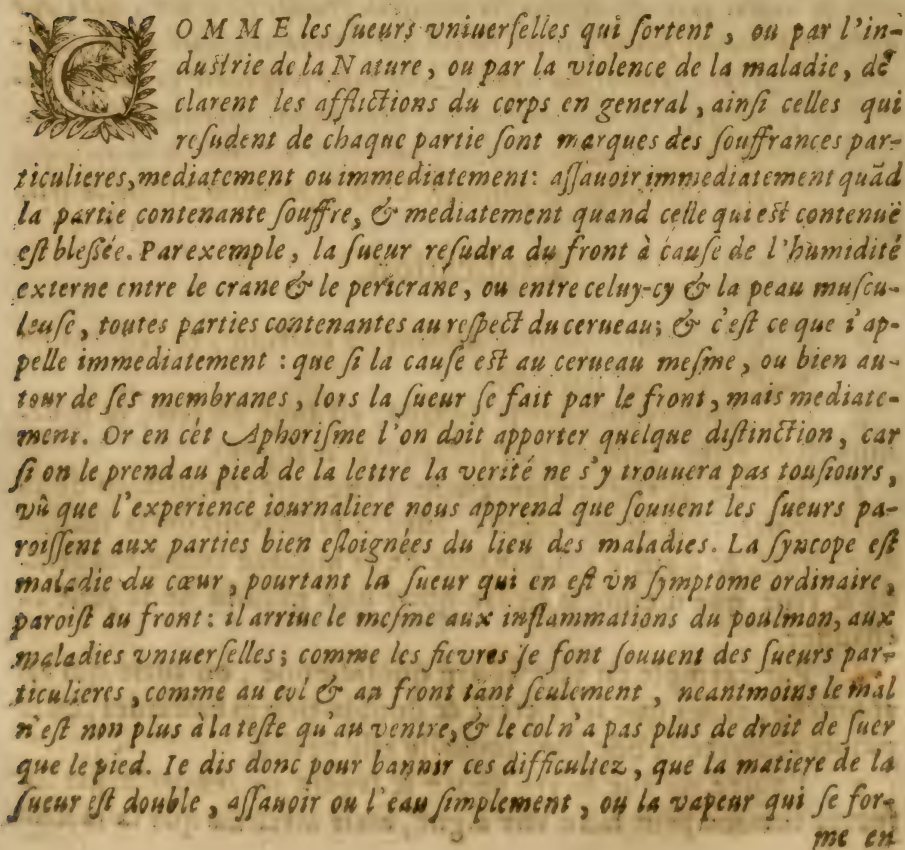 COMME les ſueurs vniuerſelles qui ſortent, ou par l'in-
duſtrie de la Nature, ou par la violence de la maladie, dē
clarent les afflictions du corps en general, ainſi celles qui
reſudent de chaque partie ſont marques des ſouffrances par-
ticulieres, mediatement ou immediatement: aſſauoir immediatement quād
la partie contenante ſouffre, & mediatement quand celle qui eſt contenuë
eſt bleſſée. Par exemple, la ſueur reſudra du front à cauſe de l'humidité
externe entre le crane & le pericrane, ou entre celuy-cy & la peau muſcu-
leuſe, toutes parties contenantes au reſpect du cerueau; & c'eſt ce que i'ap-
pelle immediatement: que ſi la cauſe eſt au cerueau meſme, ou bien au-
tour de ſes membranes, lors la ſueur ſe fait par le front, mais mediate-
ment. Or en cét Aphoriſme l'on doit apporter quelque diſtinction, car
ſi on le prend au pied de la lettre la verité ne s'y trouuera pas touſiours,
vû que l'experience iournaliere nous apprend que ſouuent les ſueurs pa-
roiſſent aux parties bien eſloignées du lieu des maladies. La ſyncope eſt
maladie du cœur, pourtant la ſueur qui en eſt vn ſymptome ordinaire,
paroiſt au front: il arriue le meſme aux inflammations du poulmon, aux
maladies vniuerſelles; comme les fievres ſe font ſouuent des ſueurs par-
ticulieres, comme au col & au front tant ſeulement, neantmoins le mal
n'eſt non plus à la teſte qu'au ventre, & le col n'a pas plus de droit de ſuer
que le pied. Ie dis donc pour bannir ces difficultez, que la matiere de la
ſueur eſt double, aſſauoir ou l'eau ſimplement, ou la vapeur qui ſe for-
me en